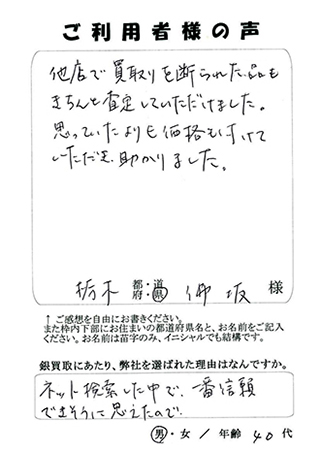 ご利用者様の声
他店で買取りを断られた品も
きちんと査定していただけました。
思っていたよりも価格を付けて
いただき、助かりました。
栃木 都・道・府・県 様
↑ご感想を自由にお書きください。
また枠内下部にお住まいの都道府県名と、お名前をご記入
ください。お名前は苗字のみ、イニシャルでも結構です。
銀買取にあたり、弊社を選ばれた理由はなんですか。
ネット検索した中で、一番信頼
できそうに思えたので。
男・女／年齢 40代